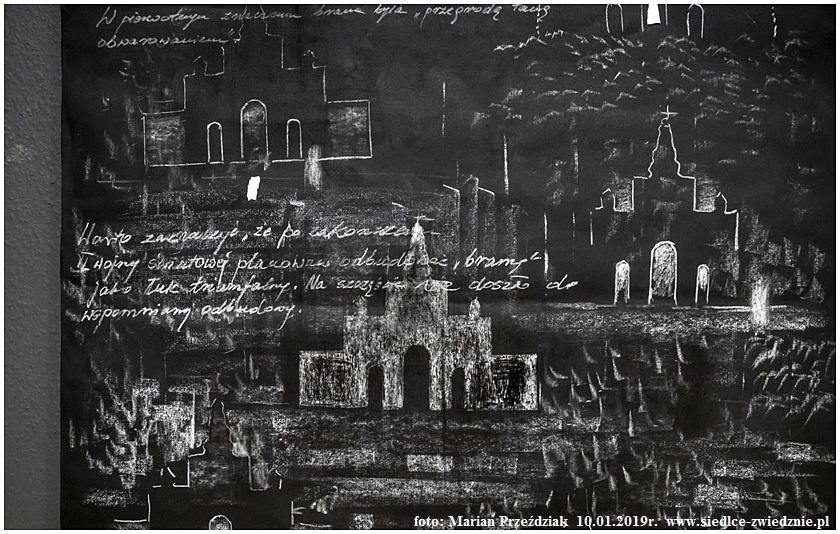 W pierwotnym znaczeniu brama była „przegrodą
obwarowaniem".
Warto zaznaczyć, że po zakończeniu
I wojny światowej planowano odbudować „bramę"
jako łuk triumfalny. Na szczęście nie doszło do
wspomnianej odbudowy.
foto: Marian Przeździak 10.01.2019r. www.siedlce-zwiedznie.pl